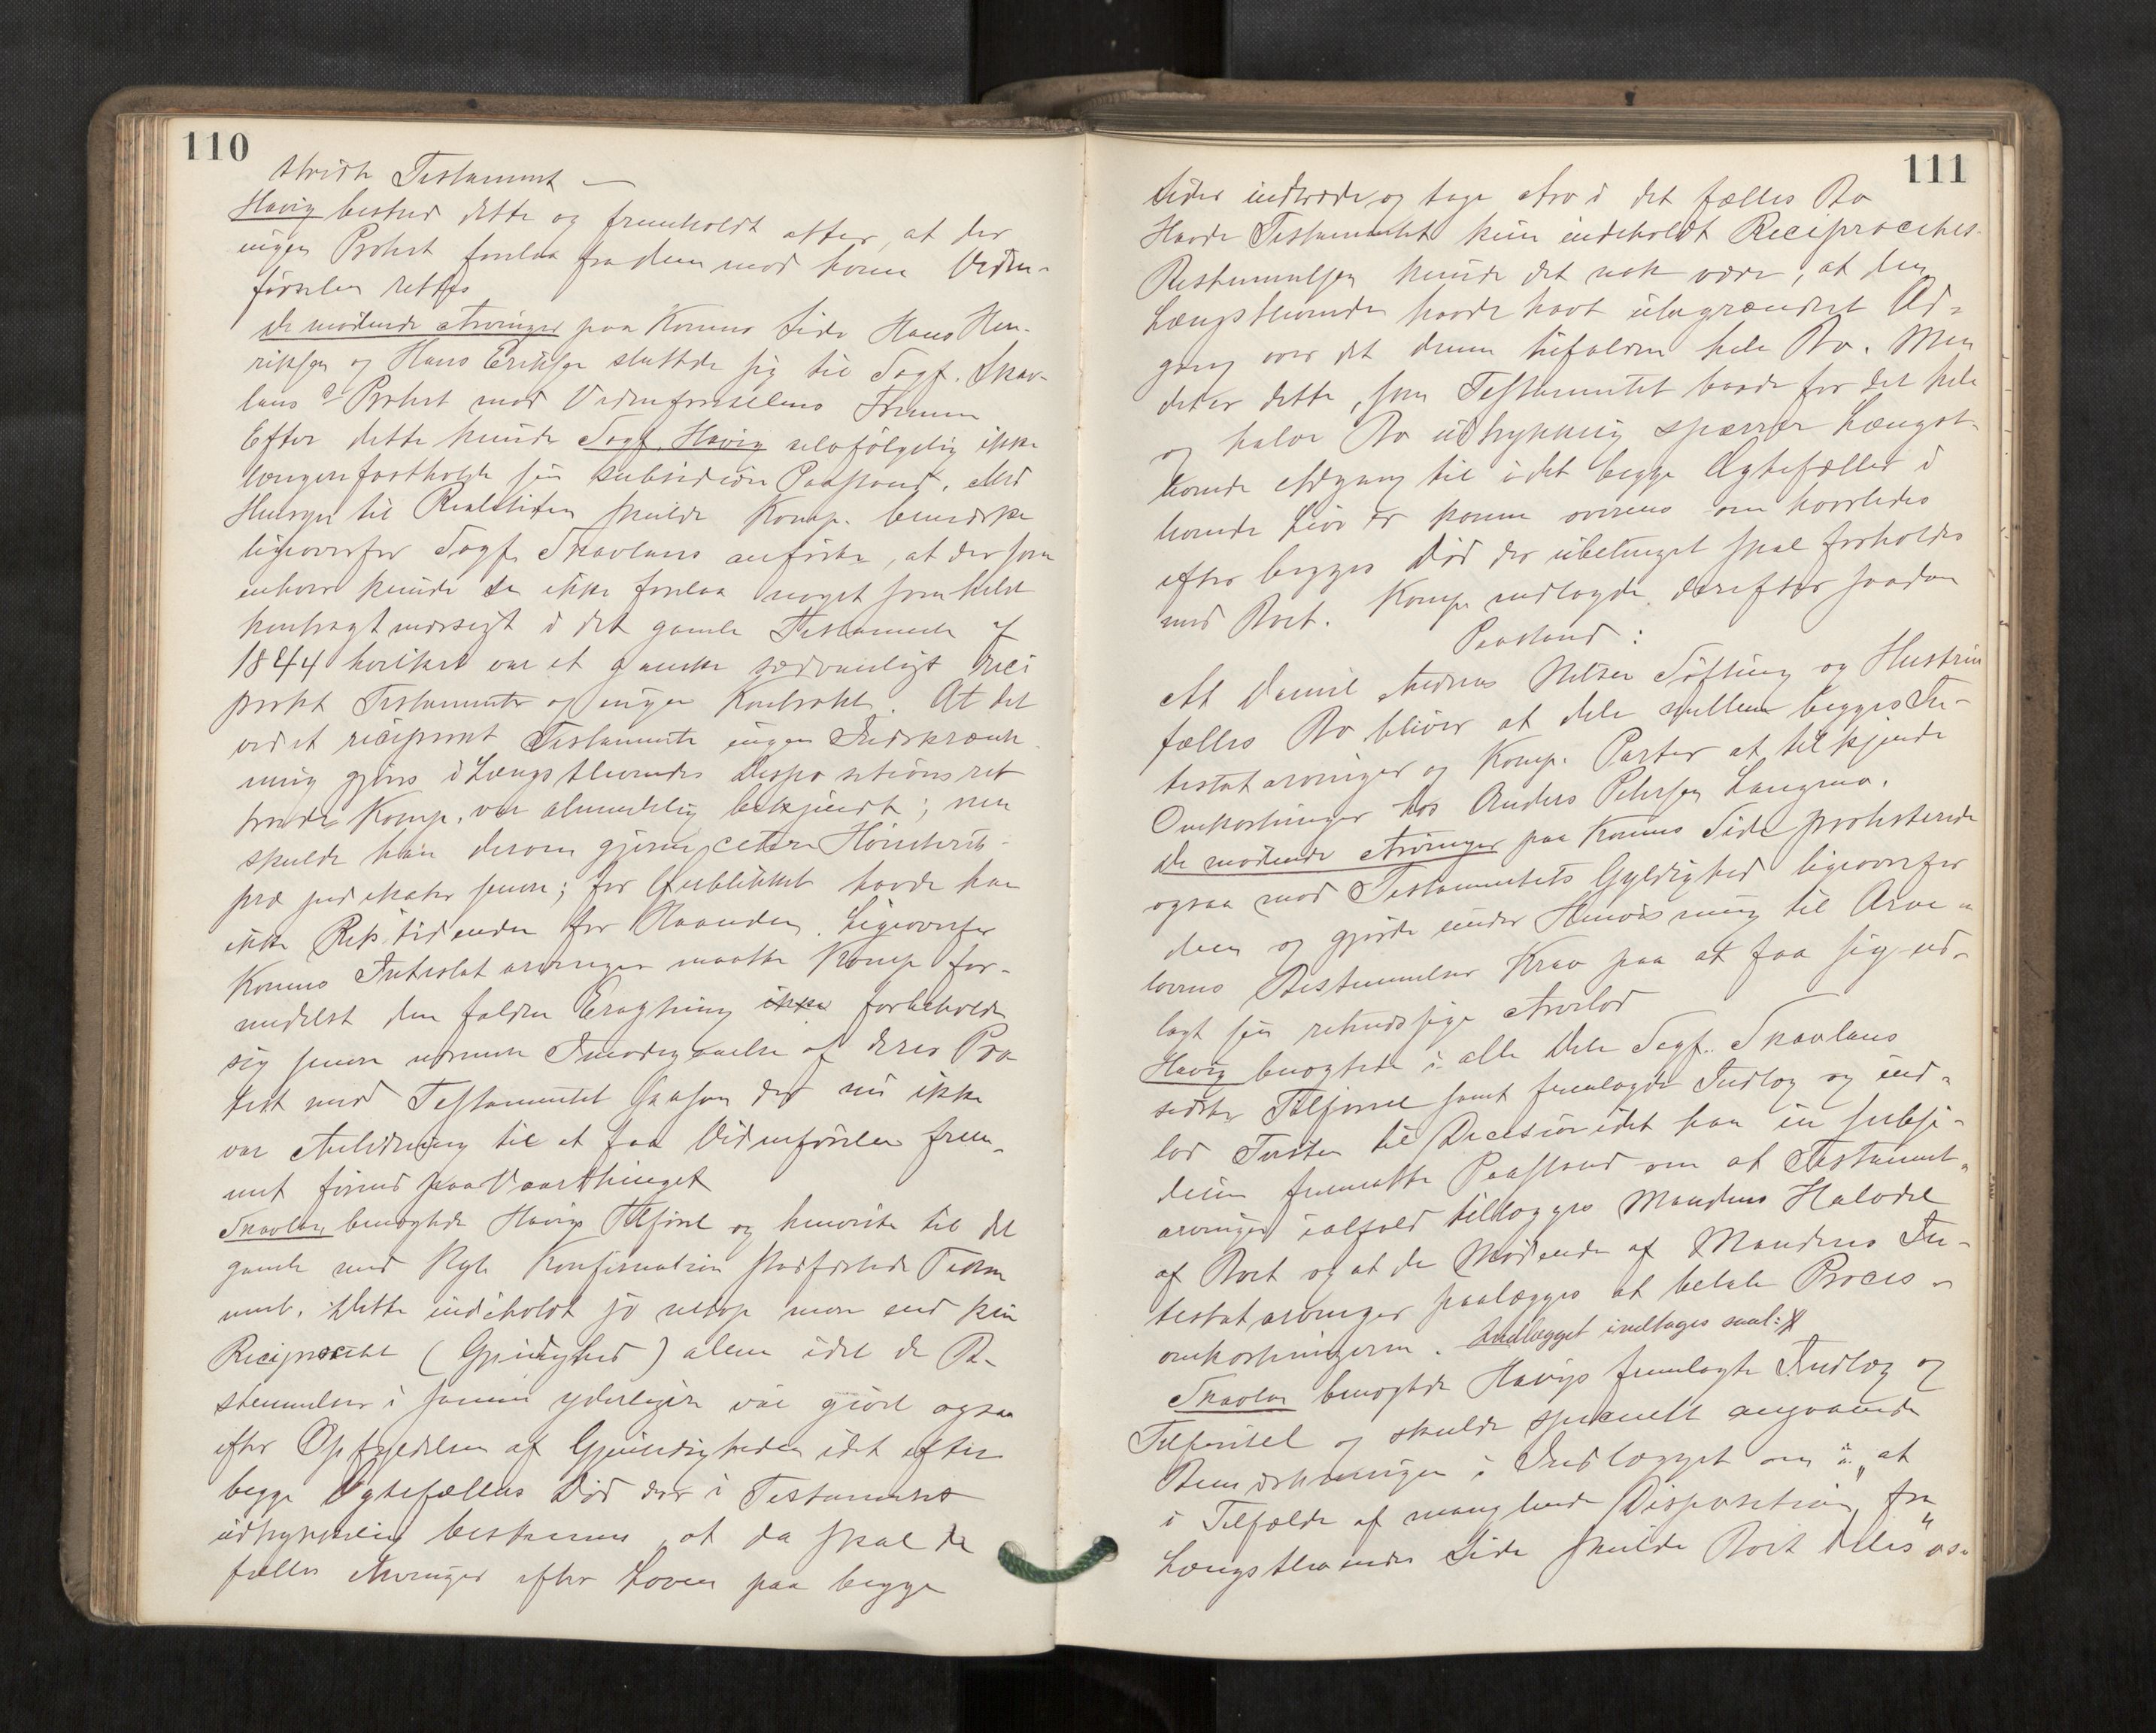 110
stridte Testament —
Havig bestred dette og fremholdt atter, at der
ingen Protest forelaa fra dem mod hvem Vidne-
førselen rettes
de mødende Arvinger paa Konens Side Hans Hen-
riksen og Hans Eriksen sluttede sig til Sagf. Skav-
lans Protest mod Vidneførselens Fremme
Efter dette kunde Sagf. Havig selvfølgelig ikke
længer fastholde sin subsidiære Paastand. Med
Hensyn til Realiteten skulde Komp. bemærke
ligeoverfor Sagf. Skavlans anførte, at der som
enhver kunde se ikke forelaa noget somhelst
kontragtmæssigt i det gamle Testamente af
1844 hvilket var et ganske sædvanligt reci
prokt Testamente og ingen Kontrakt. At det
ved et reciprokt Testamente ingen Indskrænk
ning gjøres i Længstlevendes Dispositionsret
troede Komp. var almindelig bekjendt; men
skulde han derom gjerne citere Høiesterets-
præjudikater senere; for Øieblikket havde han
ikke Retstidenden for Haanden. Ligeoverfor
Konens Intestatarvinger maatte Komp for-
medelst den faldne Eragtning ikke forbeholde
sig senere nærmere Imødegaaelse af deres Pro-
test mod Testamentet saasom der nu ikke
var Anledning til at faa Vidneførselen frem-
met førend paa Vaarthinget
Skavlan benægtede Havigs Tilførsel og henviste til det
gamle med Kgl. Konfirmation stadfæstede Testa
ment. Dette indeholdt jo netop mere end kun
Reciprocitet (Gjensidighed) alene idet de Be-
stemmelser i samme yderligere var gjort ogsaa
efter Opfyldelsen af Gjensidigheden idet efter
begge Ægtefællers Død der i Testamentet
udtrykkelig bestemmes, at da skal de
fælles Arvinger efter Loven paa begge
111
Sider indtræde og tage Arv i det fælles Bo
Havde Testamentet kun indeholdt Reciprocitets-
Bestemmelsen kunde det nok være, at den
Længstlevende havde havt ubegrændset Ad-
gang over det denne tilfaldne hele Bo. Men
det er dette, som Testamentet baade for det hele
og halve Bo udtrykkelig spærrer Længst-
levende Adgang til idet begge Ægtefæller i
levende Live er komne overens om hvorledes
efter begges Død der ubetinget skal forholdes
med Boet. Komp. nedlagde derefter saadan
Paastand:
At Daniel Andreas Nilsen Søfting og Hustrus
fælles Bo bliver at dele mellem begges In-
testatarvinger og Komp. Parter at tilkjende
Omkostninger hos Anders Pehrsen Langmo.
de mødende Arvinger paa Konens Side protesterede
ogsaa mod Testamentets Gyldighed ligeoverfor
dem og gjorde under Henvisning til Arve-
lovens Bestemmelser Krav paa at faa sig ud-
lagt sin retmæssige Arvelod
Havig benægtede i alle Dele Sagf. Skavlans
sidste Tilførsel samt fremlagde Indlæg og ind-
lod Tvisten til Decision idet han in subsi-
dium fremsatte Paastand om at Testament-
arvingen ialfald tillægges Mandens Halvdel
af Boet og at de Mødende af Mandens In-
testatarvinger paalægges at betale Proces-
omkostningerne. Indlægget indtages saal:
Skavlan benægtede Havigs fremlagte Indlæg og
Tilførsel og skulde specielt angaaende
Bemærkningen i Indlægget om „at
i Tilfælde af manglende Disposition fra
Længstlevendes Side skulde Boet deles“ os.